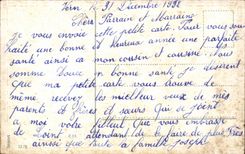 Vern le 31 Décembre 1931
Chers Parrain et Marraine
Je vous envoie cette petite carte. Pour vous souhaiter
une bonne et heureuse année une parfaite
santé ainsi ca mon cousin et cousine. Nous
somme tous en bonne santé je désirent
que ma petite carte vous trouve de
même recevez les meilleur voeux de mes
parent et frères et sœurs qui se joint
a moi votre filleul que vous embrasse
de Loint en attendant de le faire de plus Près
que toute la famille Joseph